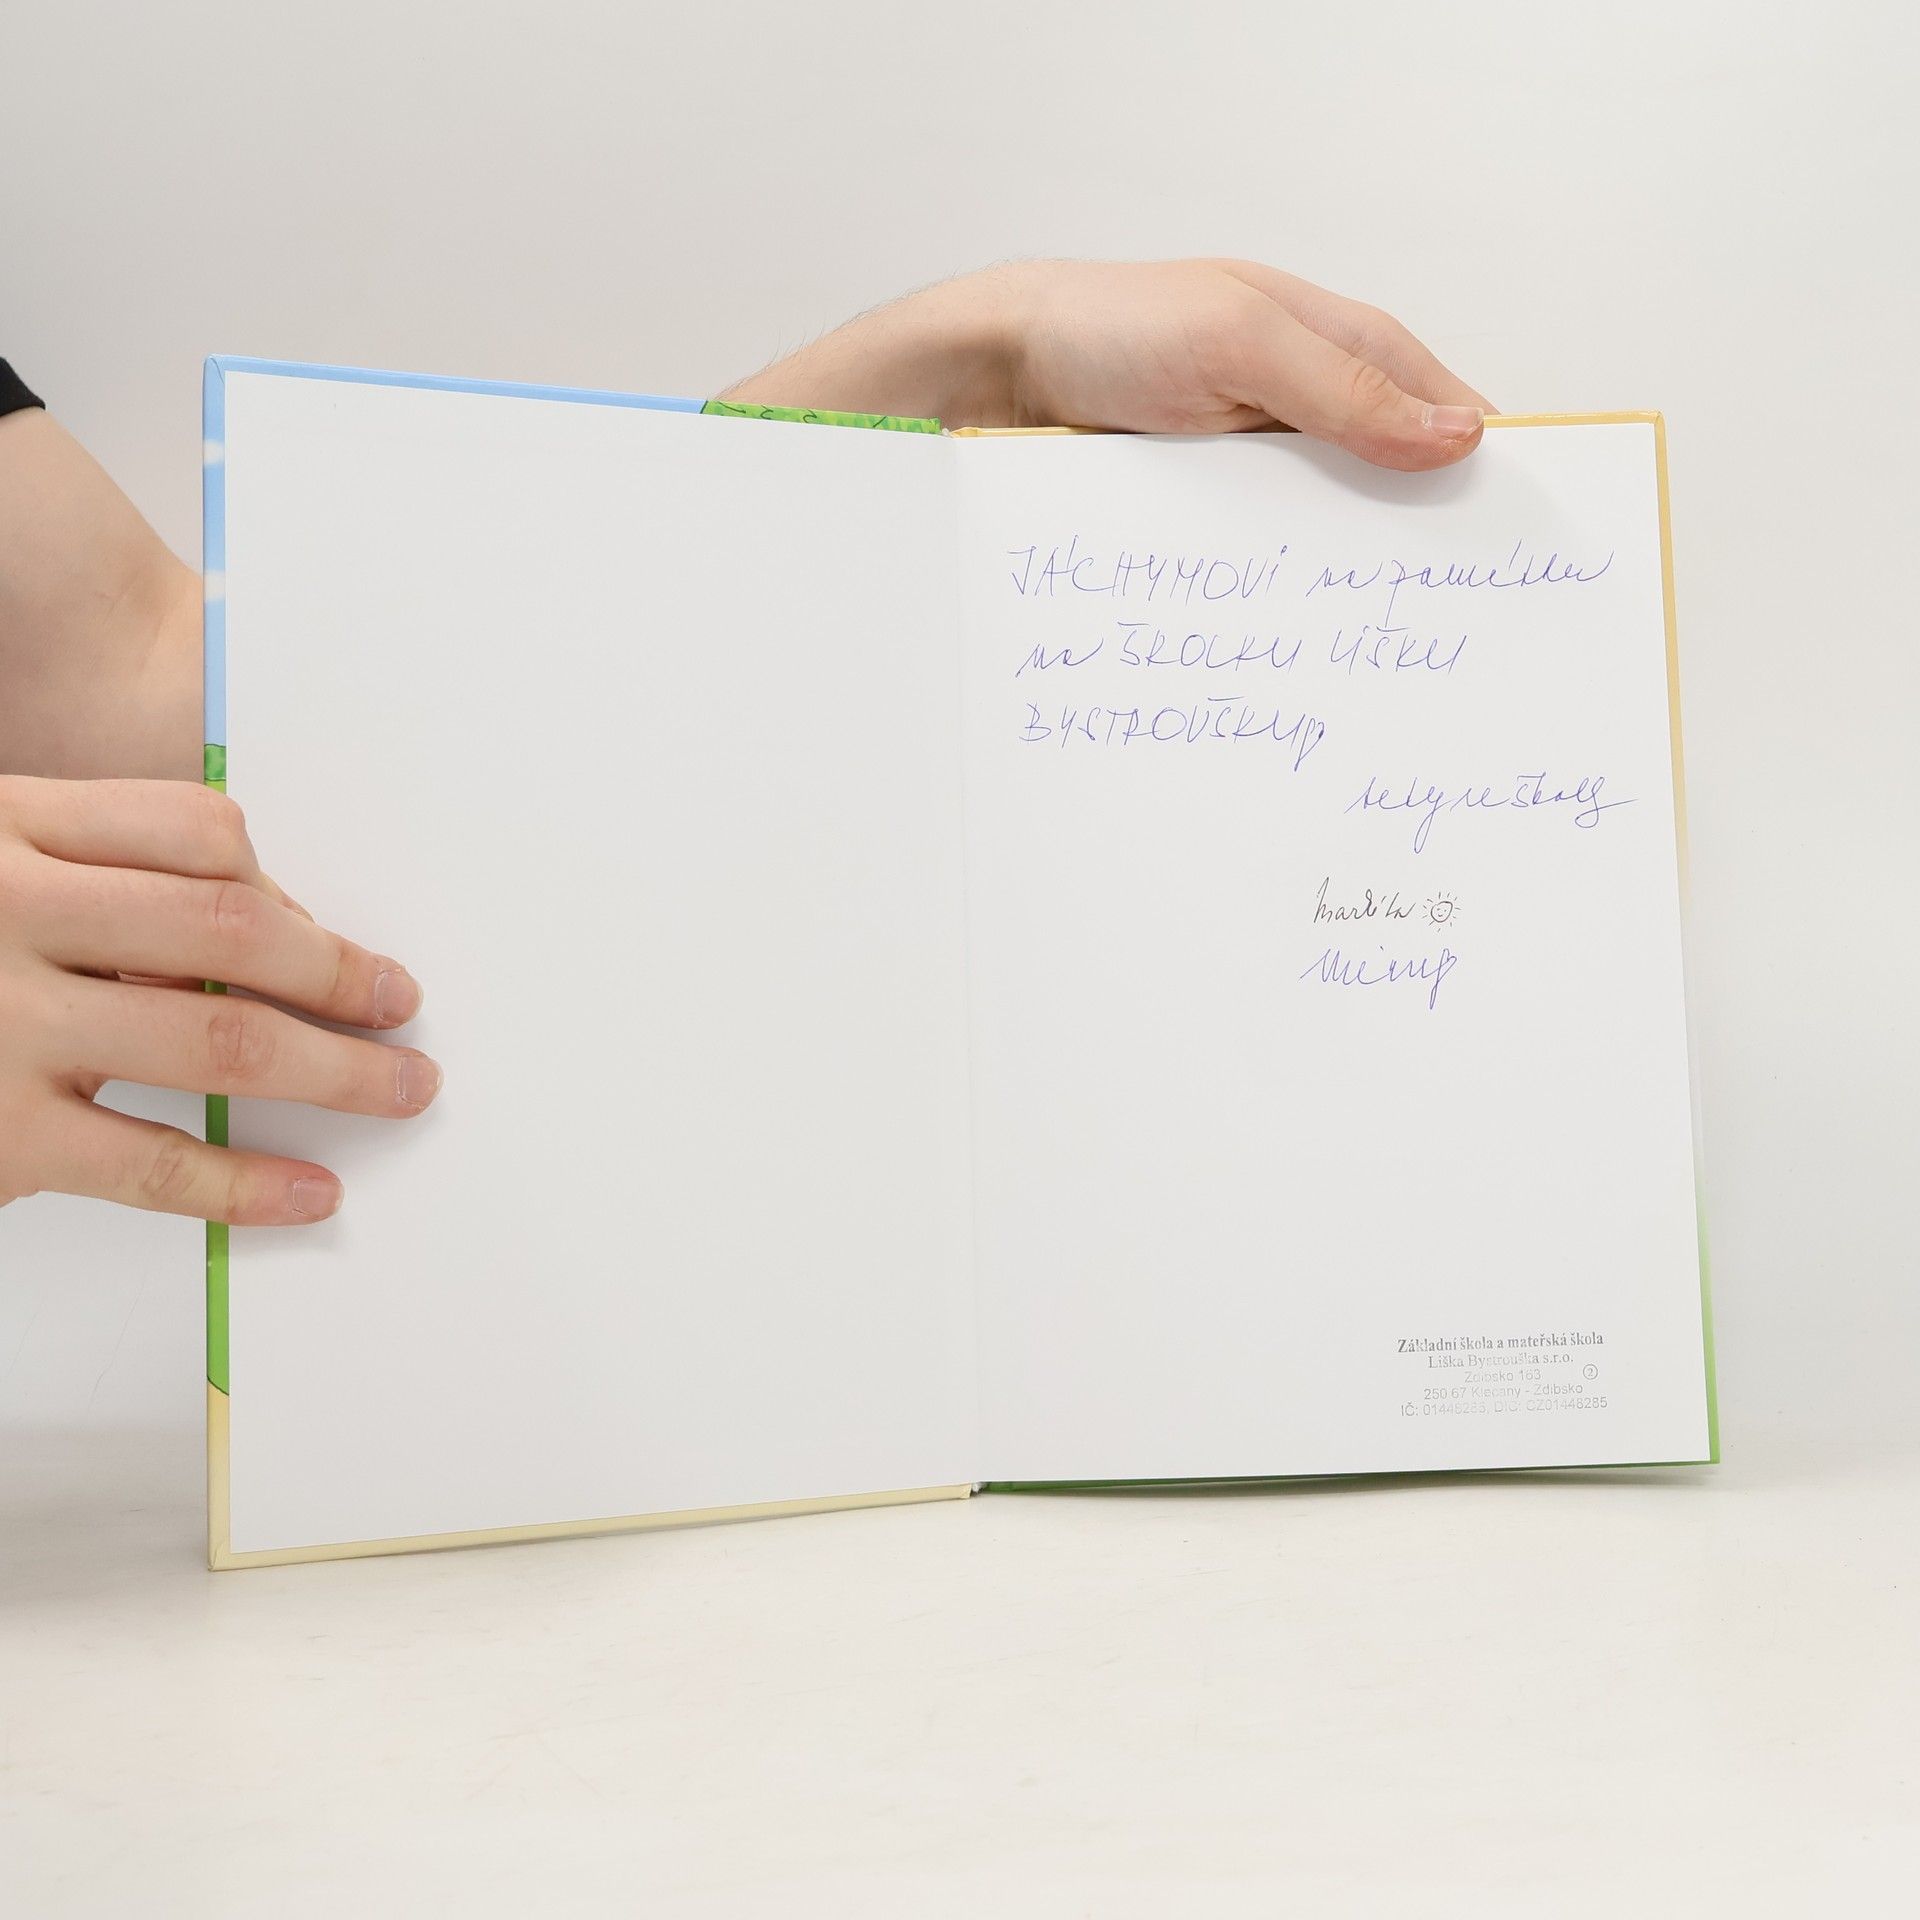 JÁCHYMOVI na památku
na ŠKOLKU LIŠKU
BYSTROUŠKU
tety ze školy
Markéta
Základní škola a mateřská škola
Liška Bystrouška s.r.o.
Zdibsko 163 2
250 67 Klecany - Zdibsko
IČ: 01448285, DIČ: CZ01448285